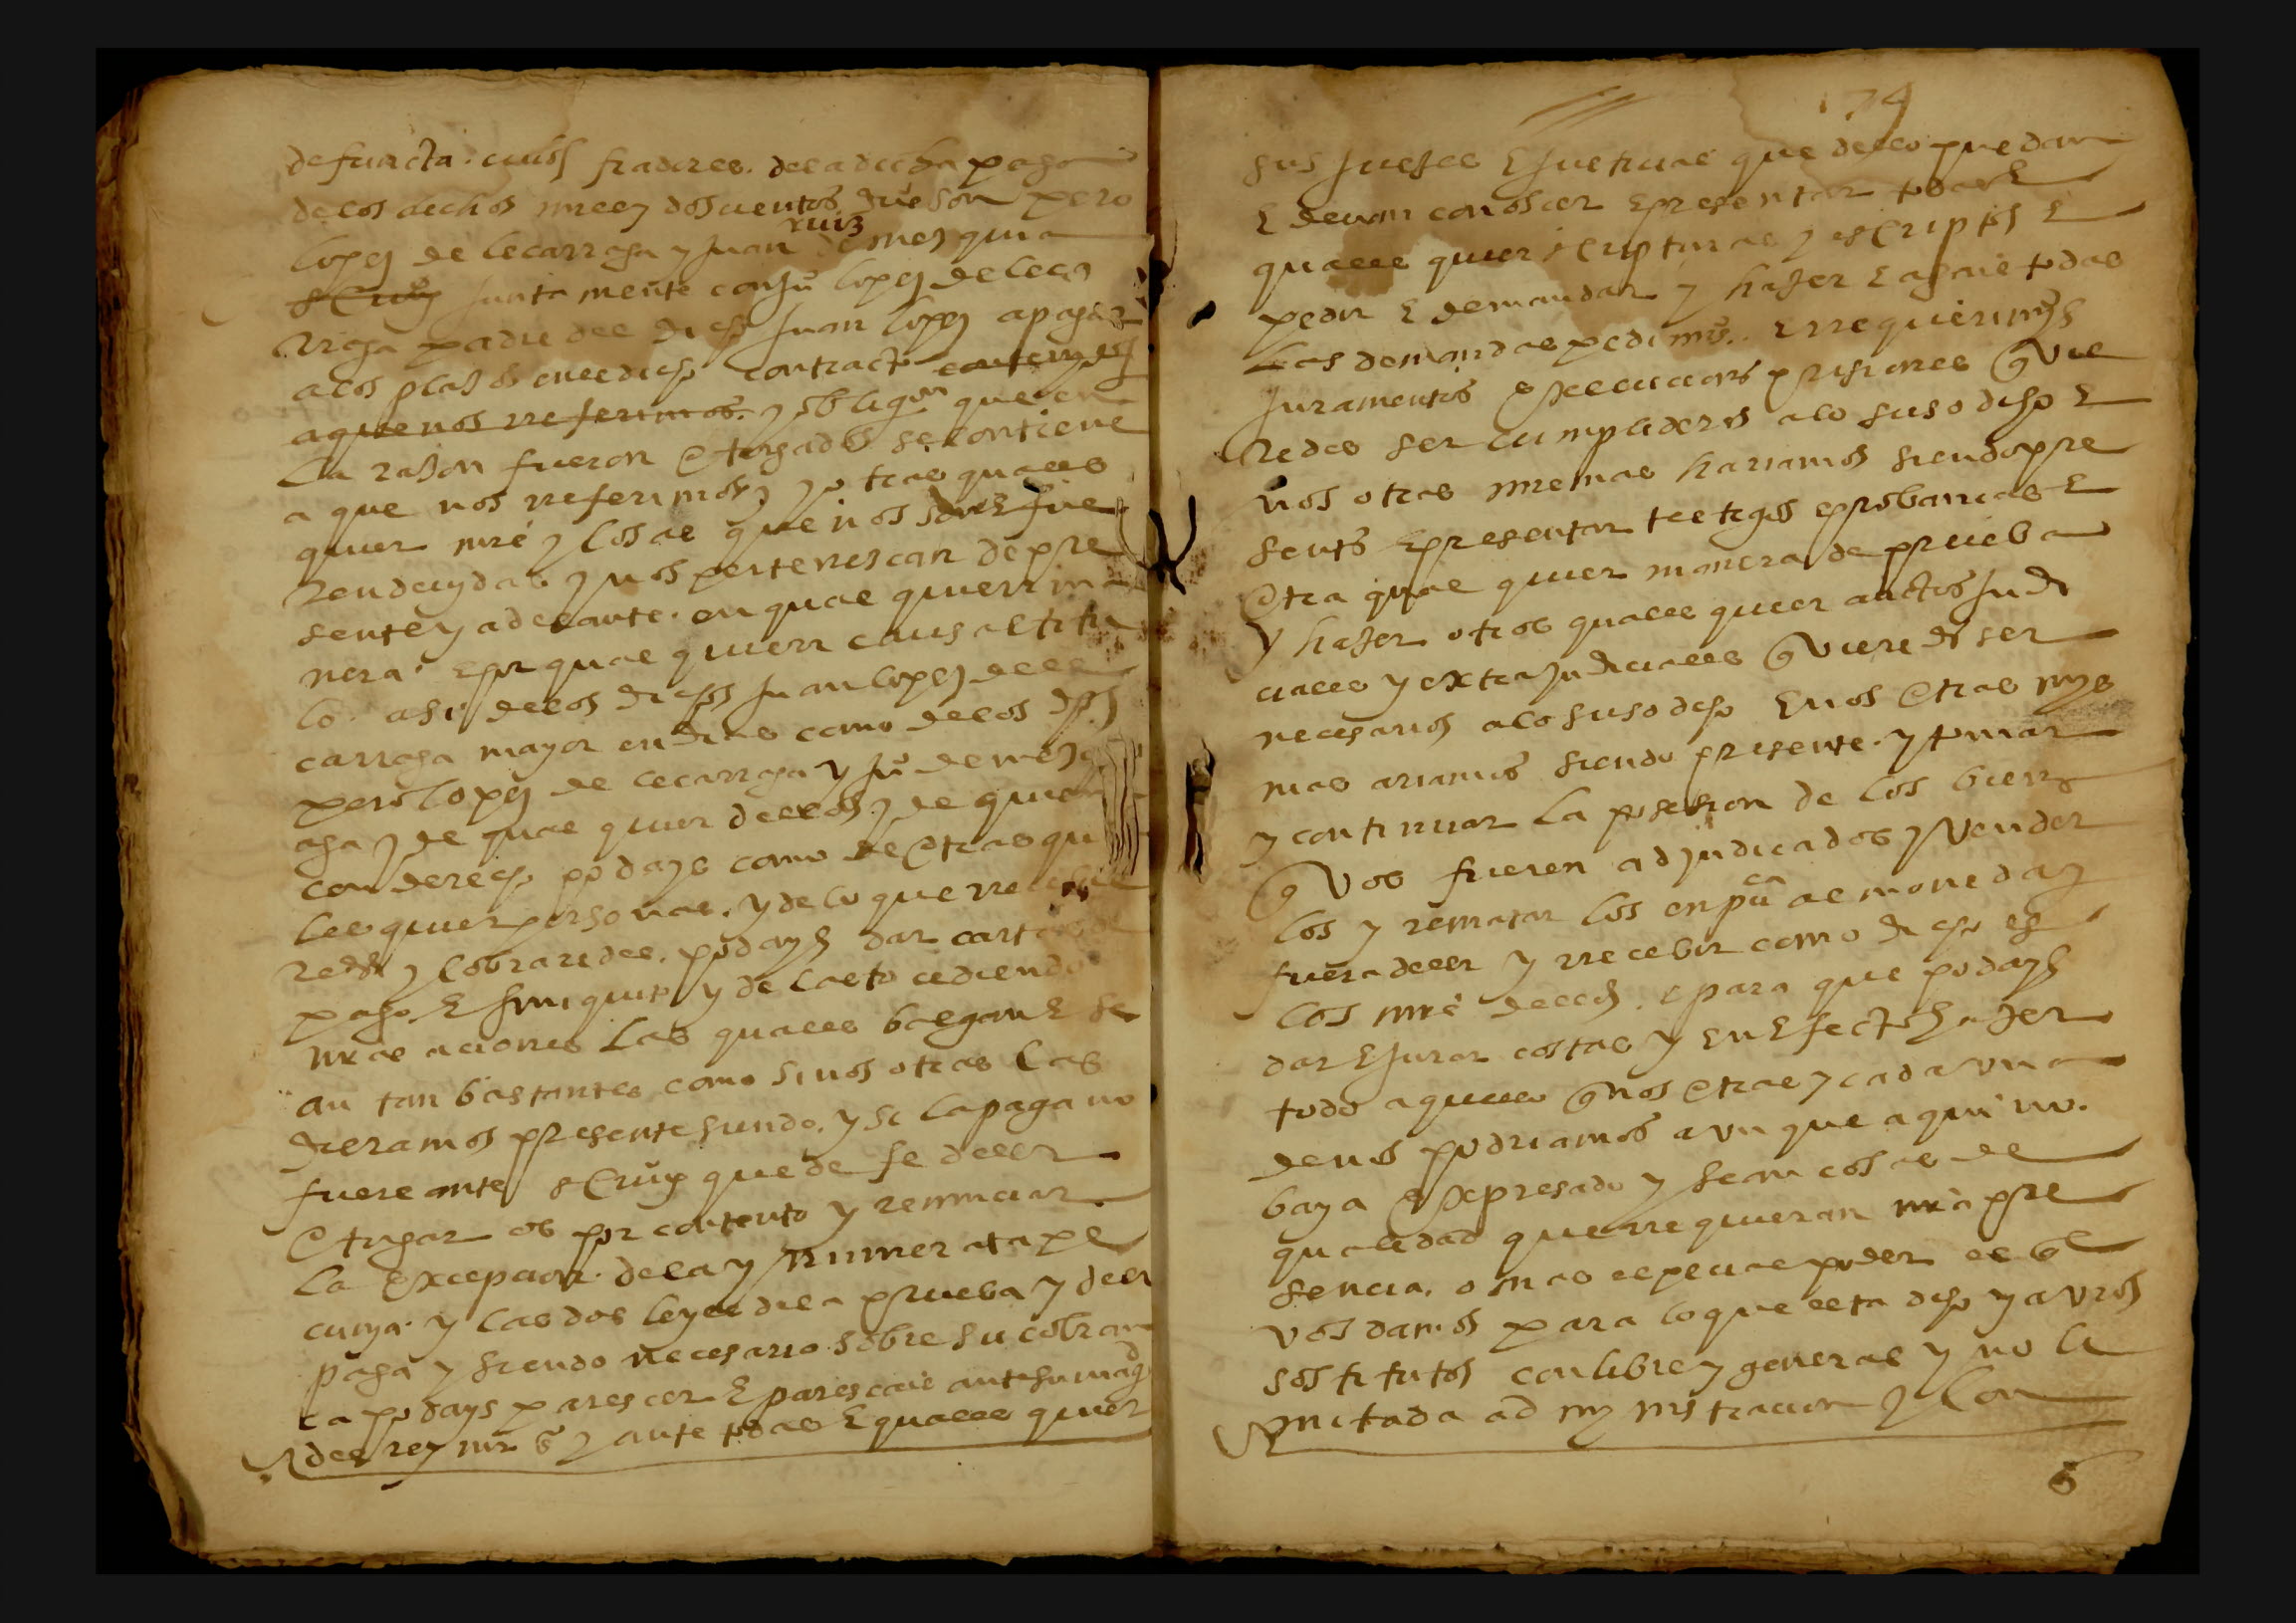 defuncta. cuios fiadores. dela dicha paga
delos dichos mill y dosçientos que son pero
lopez de lecarraga y juan ruiz de mezquia
juntamente con ju° lopez de leca
rraga padre del dicho juan lopez a pagar
alos plazos enel dicho contracto contenydos
aque nos rreferimos. y obligon que en
la razon fueron otorgados se contiene
a que nos rreferimos, y otras quales
quier mrs y cosas que nos son E fue
ren devydas y nos pertenescan de pre
sente y adelante. en qual quierr ma
nera. E por qual quierr causa e titu
lo. asi delos dichos juan lopez dele
carraga mayor en dias como delos dhos
pero lopez de lecarraga y ju° de mezq
aga y de qual quier dellos y de quien
con derecho podays como de otras qua
les quier personas. y delo que rrecibie
redes y cobraredes. podays dar cartas de
pago E finiquito y de lasto cediendo
nras aciones las quales balgan E se
an tan bastantes como si nos otras las
dieramos presente siendo. y si la paga no
fuere ante escriuo que de fe della
otogar os por contento y rennunciar
la exepcion. dela y nnumerata pe
cunya. y las dos leyes dela prueba y dela
paga y siendo necesario sobre su cobran
ca podays parescer E parescais ante su magd
del rey nro s y ante todas E quales quier
174
sus juezes E justicias que dello puedan
E devan conoscer E presentar todas E
quales quier escripturas y escriptos E
pedir E demandar y hazer E agais todas
las demandas pedimos. E rrequerimyos
juramentos execuciones prisiones que vie
redes ser cumplideros alo suso dicho E
nos otras mismas hariamos siendo pre
sents E presentar testigos e probancas E
otra qual quier manera de prueba
y hazer otros quales quier auctos judi
ciales y extrajudiciales que viere dis ser
necesarios alo suso dcho E nos otras mys
mas ariamos siendo presente. y tomar
y continuar la posesion de los bienes
que vos fueren adjudicados y vender
los y rematar los en puca almoneda y
fuera della y rrecebir como dicho es
los mrs dellos. e para que podays
dar E jurar costas y en Efecto hazer
todo aquello que nos otras y cada vna
de nos podriamos avn que aqui no.
baya expresado y sean cosas de
qualidad que rrequieran nra pre
sencia. o mas especial poder el q
vos damos para lo que esta dcho y a vros
sostitutos con libre y general y no li
mitada admynistracion y con